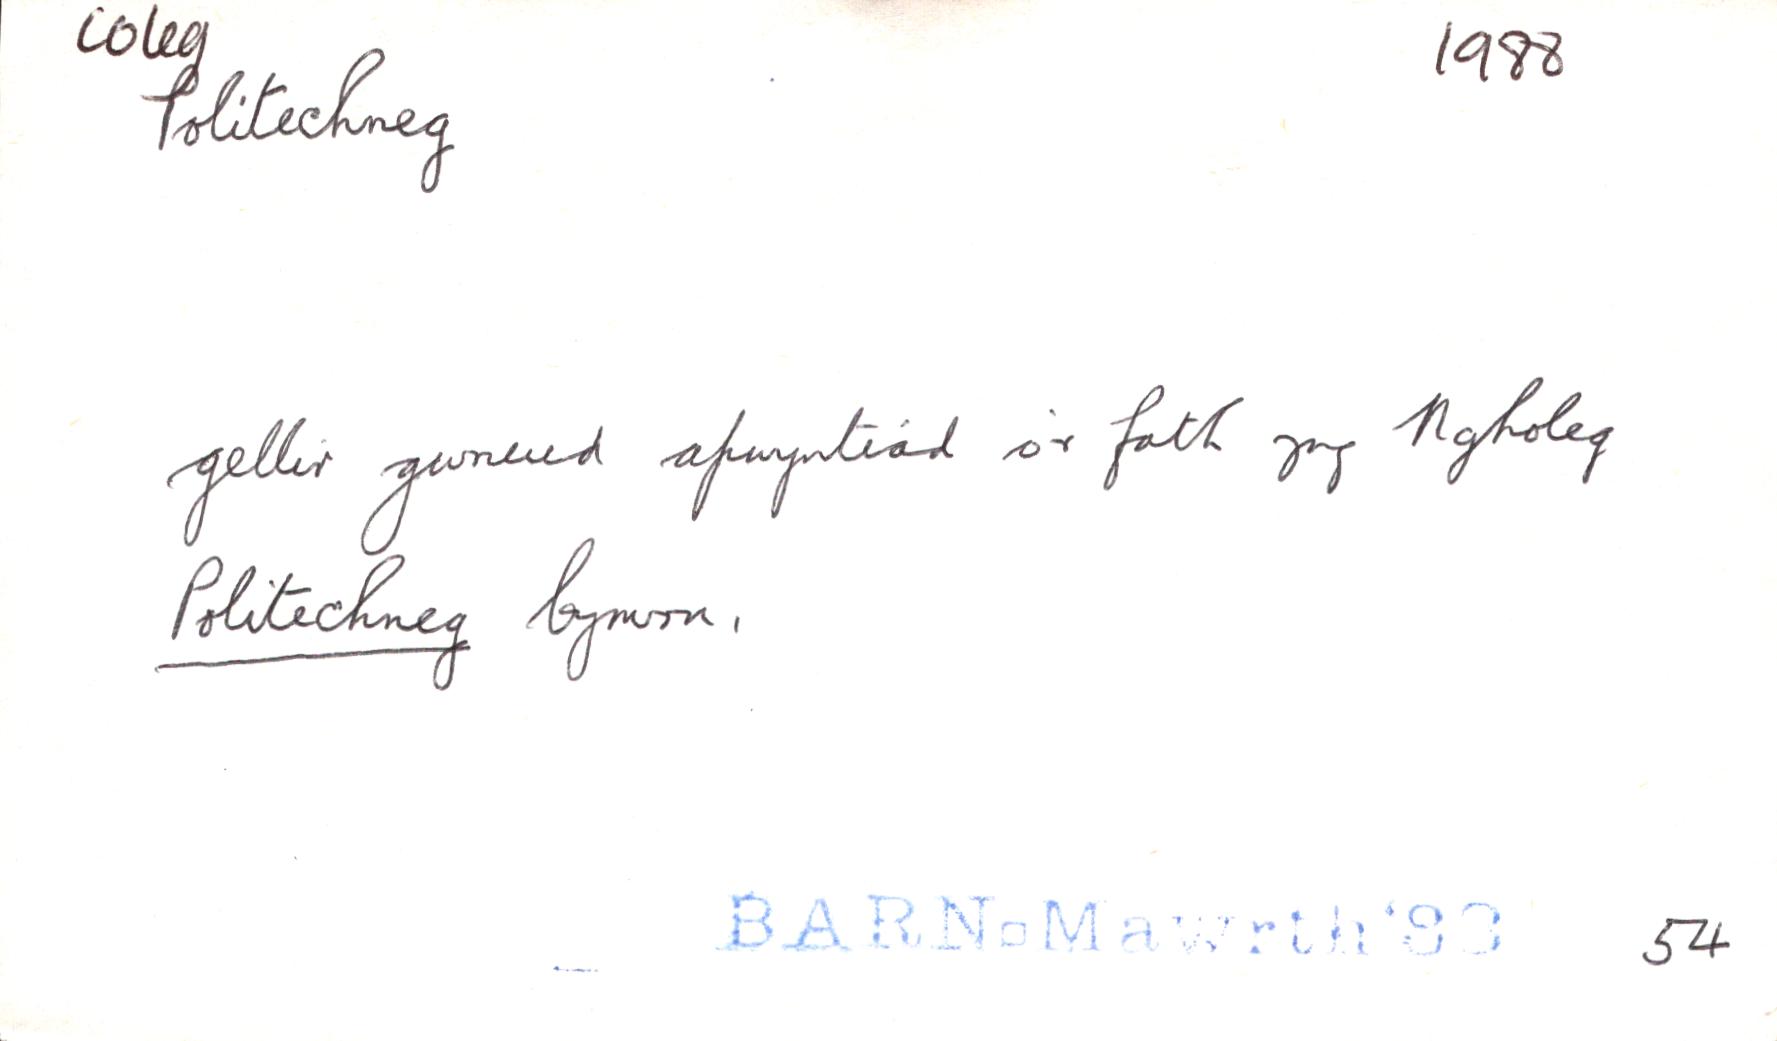 coleg
Politechneg
1988
gellir gwneud apwyntiad o'r fath yng Ngholeg
Politechneg
BARN Mawrth '88
54